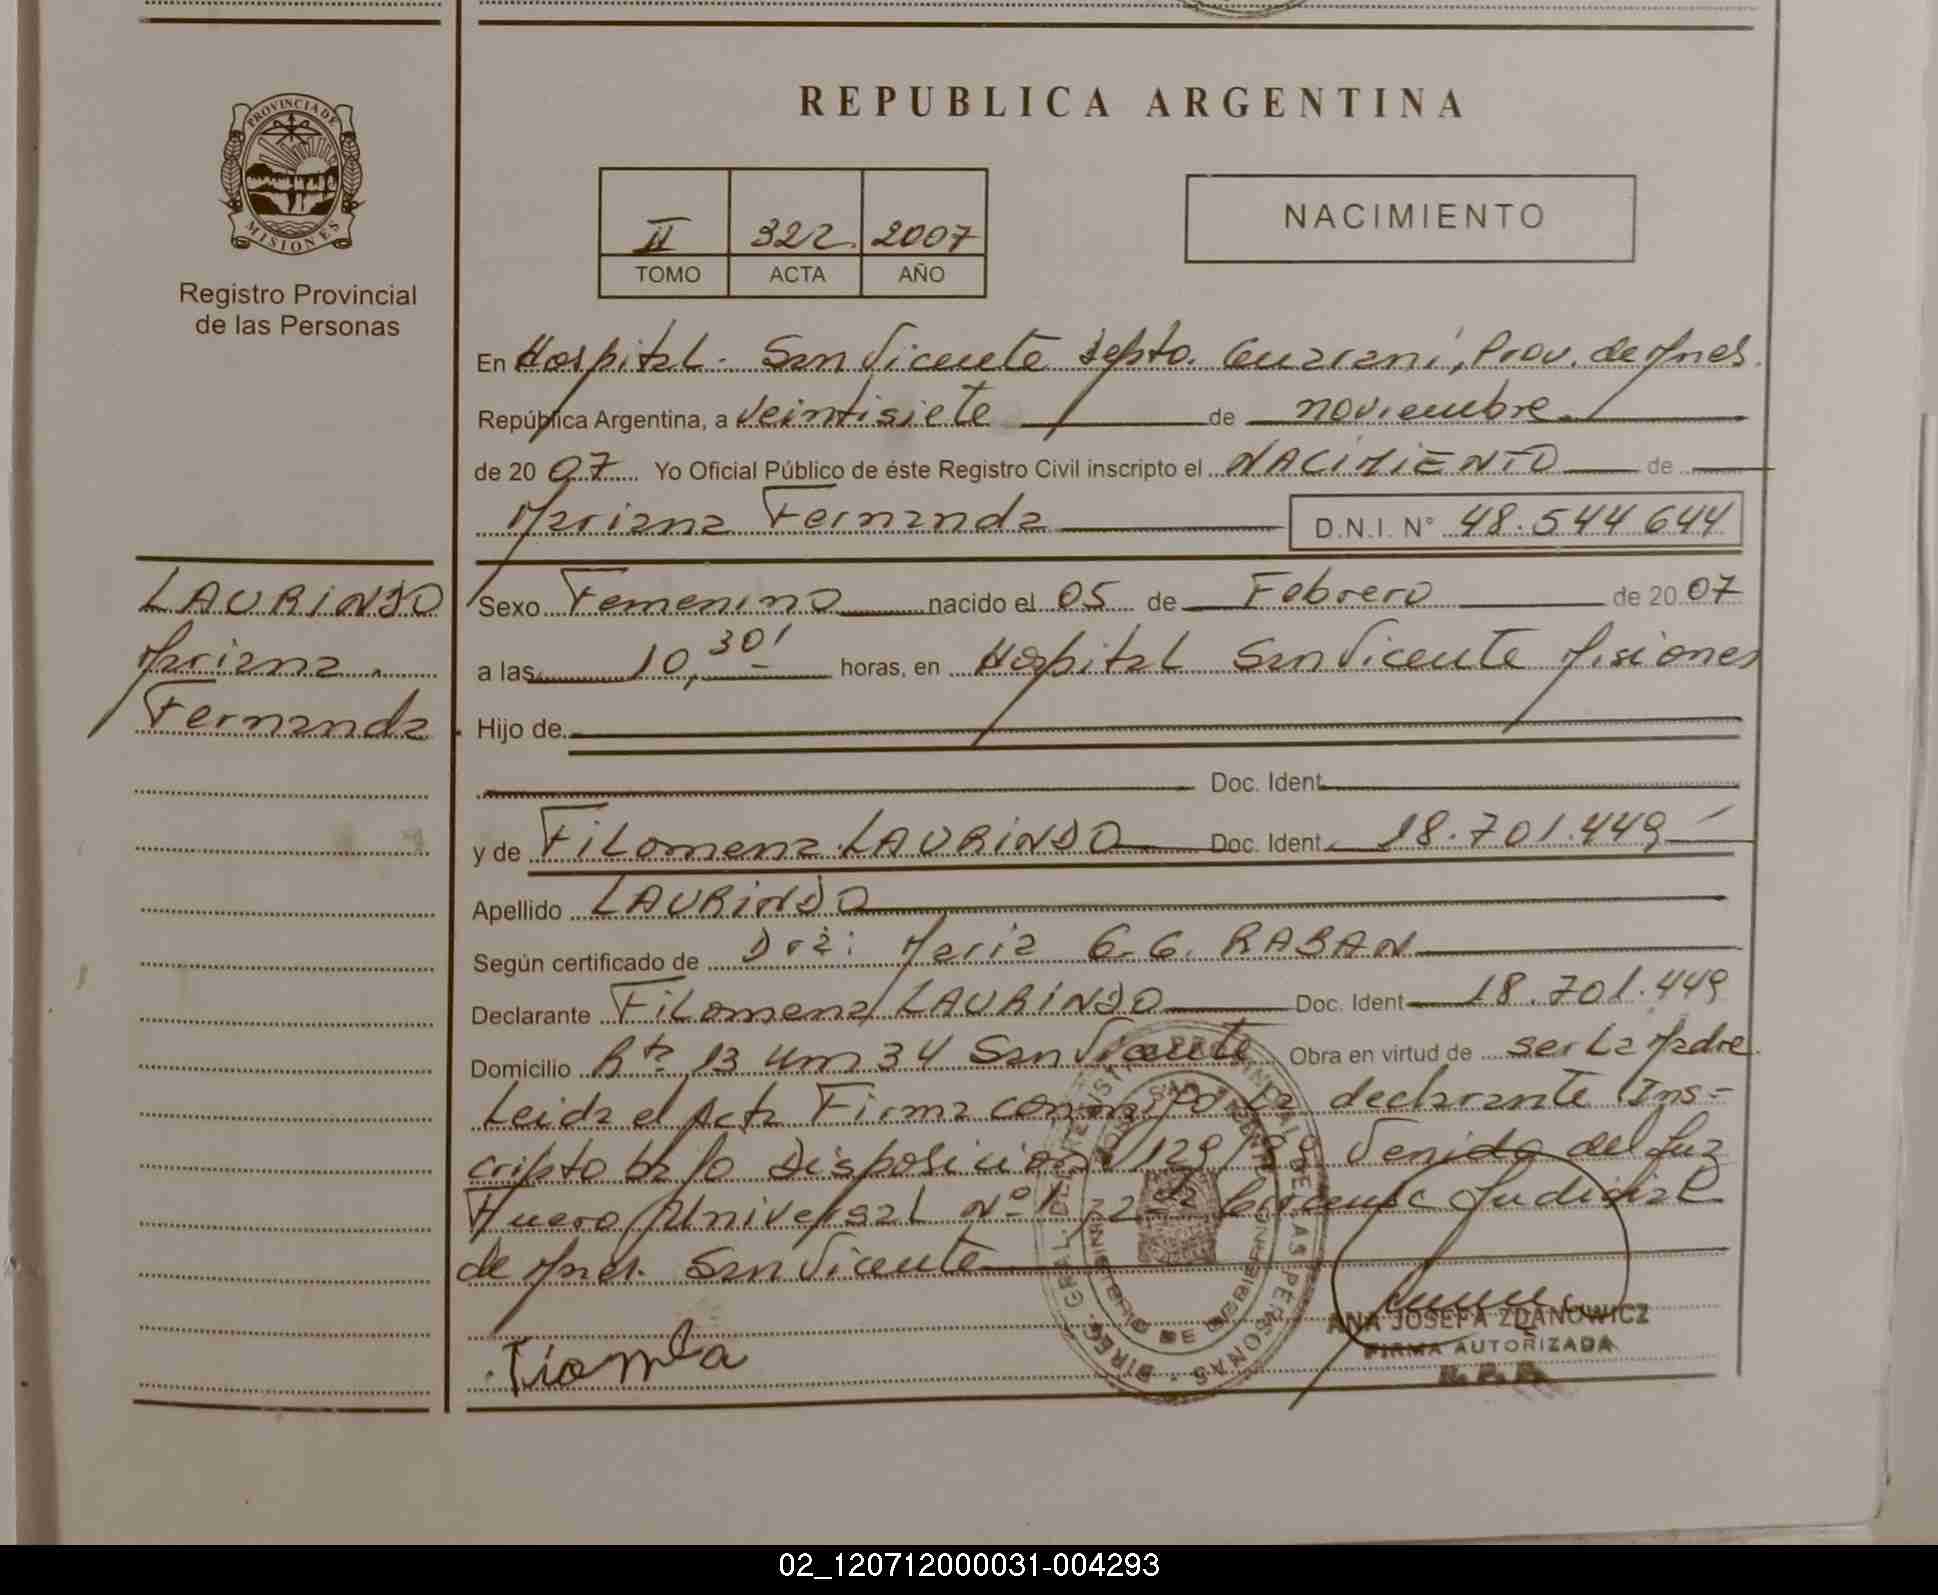 REPUBLICA ARGENTINA
PROVINCIA DE
MISIONES
Registro Provincial
de las Personas
II 322 2007
TOMO ACTA AÑO
NACIMIENTO
En Hospital - San Vicente Depto. Guarani, Prov. de Mnes.
República Argentina, a Veintisiete de noviembre
de 20 07 Yo Oficial Público de éste Registro Civil inscripto el NACIMIENTO de
Mariana Fernanda D.N.I. N° 48.544.644
LAURINDO
Mariana
Fernanda
Sexo Femenino nacido el 05 de Febrero de 20 07
a las 10,30' horas, en Hospital San Vicente Misiones
Hijo de
Doc. Ident
y de Filomena LAURINDO Doc. Ident 18.701.449
Apellido LAURINDO
Según certificado de Dra: Maria G. G. RABAN
Declarante Filomena LAURINDO Doc. Ident 18.701.449
Domicilio Rta 13 Km 34 San Vicente Obra en virtud de ser La Madre
Leida el Acta Firma conmigo La declarante Ins=
cripto bajo Disposicion 129/98 Venido del Juz
Fuero Universal Nº 1, 2da Judicial
de Mnes. San Vicente
DIREC. GRAL. DEL REGISTRO PROVINCIAL DE LAS PERSONAS
MINISTERIO DE GOBIERNO
ANA JOSEFA ZDANOWICZ
FIRMA AUTORIZADA
R.P.P.
02_120712000031-004293